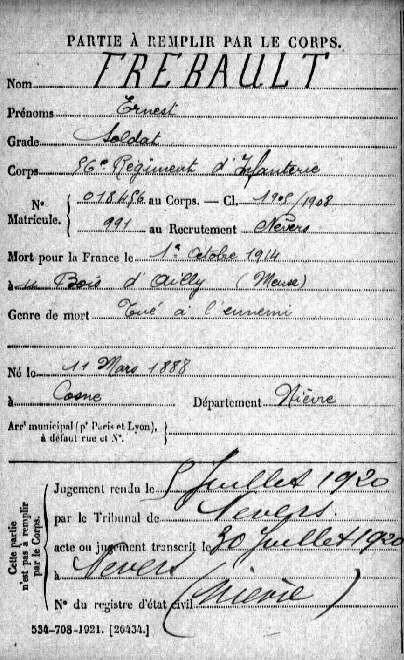 PARTIE À REMPLIR PAR LE CORPS.
Nom FREBAULT
Prénoms Ernest
Grade Soldat
Corps 56e Régiment d'Infanterie
N° Matricule. 018486 au Corps. — Cl. 1908/1908
991 au Recrutement Nevers
Mort pour la France le 1er Octobre 1914
à Bois d'Ailly (Meuse)
Genre de mort Tué à l'ennemi
Né le 11 Mars 1888
à Cosne Département Nièvre
Arrt municipal (pr Paris et Lyon),
à défaut rue et N°.
Cette partie n'est pas à remplir par le Corps.
Jugement rendu le 5 Juillet 1920
par le Tribunal de Nevers.
acte ou jugement transcrit le 30 Juillet 1920
à Nevers
N° du registre d'état civil (Nièvre)
534-708-1921. [26434.]